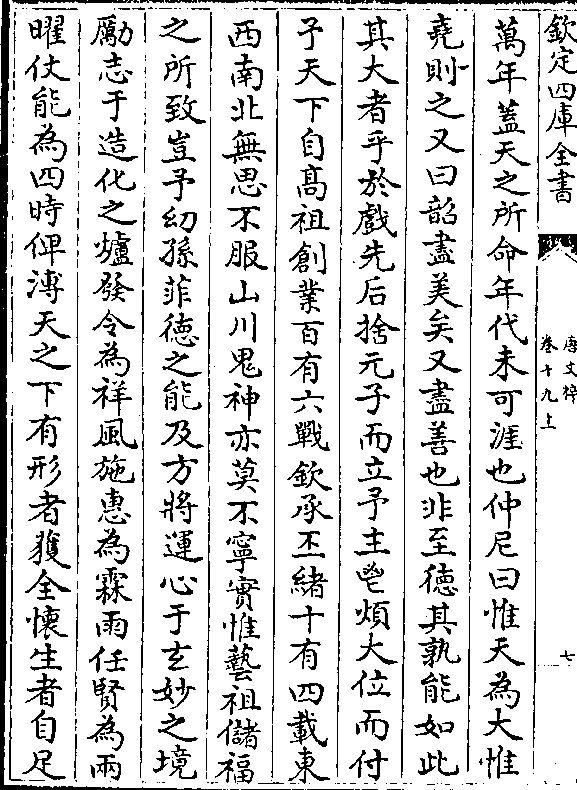 欽定四庫全書
唐文粹
卷十九上
七
萬年蓋天之所命年代未可涯也仲尼曰惟天為大惟
堯則之又曰韶盡美矣又盡善也非至德其孰能如此
其大者乎於戲先后捨元子而立予主鬯煩大位而付
予天下自髙祖創業百有六戰欽承丕緒十有四載東
西南北無思不服山川鬼神亦莫不寧實惟藝祖儲福
之所致豈予幼孫菲徳之能及方將運心于玄妙之境
勵志于造化之爐發令為祥風施惠為霖雨任賢為兩
曜仗能為四時俾溥天之下有形者獲全懐生者自足